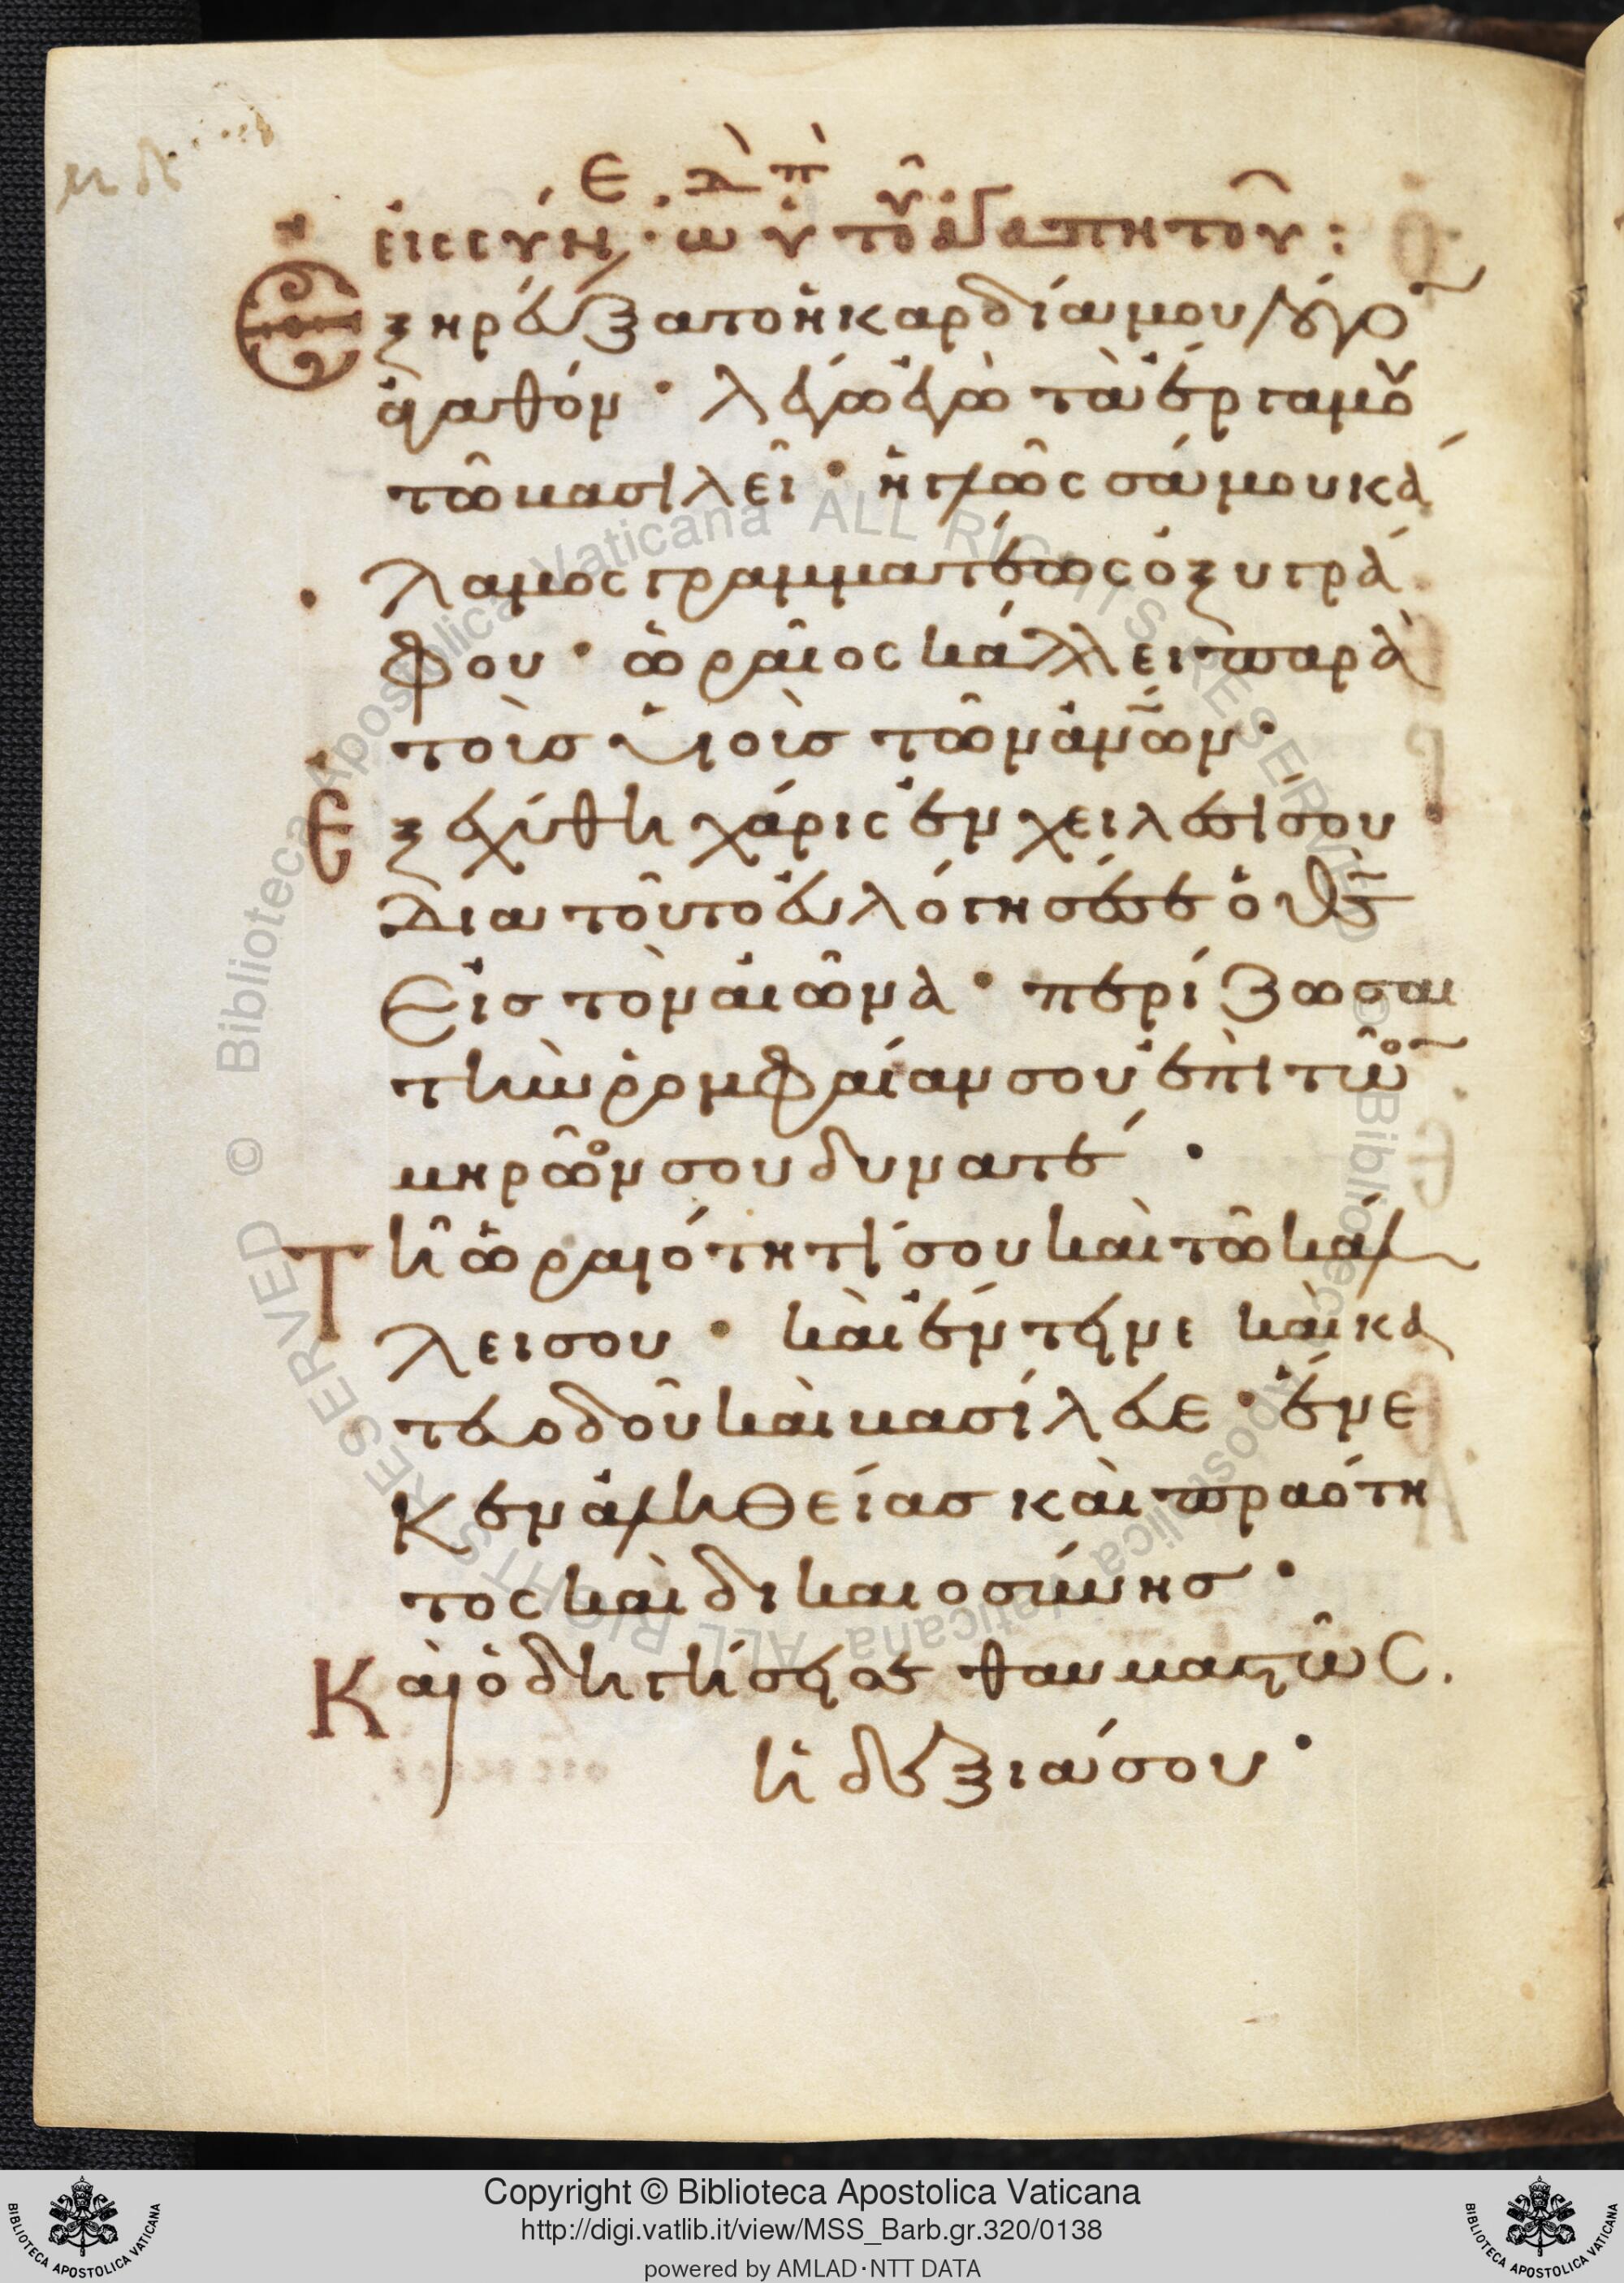 εἰς σύν· ὠ ὑ τοῦ ἀγαπητοῦ:
Ἐξηρεύξατο ἡ καρδία μου λόγο
ἀγαθόν· λέγω ἐγὼ τὰ ἔργα μου
τῶ βασιλεῖ· ἡ γλῶσσά μου κά
λαμος γραμματέως ὀξυγρά
φου· ὡραῖος κάλλει παρὰ
τοὺς υἱοὺς τῶν ἀνῶν·
Ἐξεχύθη χάρις ἐν χείλεσί σου
διατοῦτο εὐλόγησέ σε ὁ θς
εἰς τὸν αἰῶνα· περίζωσαι
τὴν ῥομφαίαν σου ἐπὶ τὸ
μηρόν σου δυνατέ·
Τῆ ὡραιότητί σου καὶ τῶ κάλ
λει σου· καὶ ἔντεινε καὶ κα
τευοδοῦ καὶ βασίλευε· ἕνε
κεν ἀληθείας καὶ πραότη
τος καὶ δικαιοσύνης·
Καὶ ὁδηγήσει σε θαυμαστῶς
ἡ δεξιά σου·
Copyright © Biblioteca Apostolica Vaticana
http://digi.vatlib.it/view/MSS_Barb.gr.320/0138
powered by AMLAD·NTT DATA